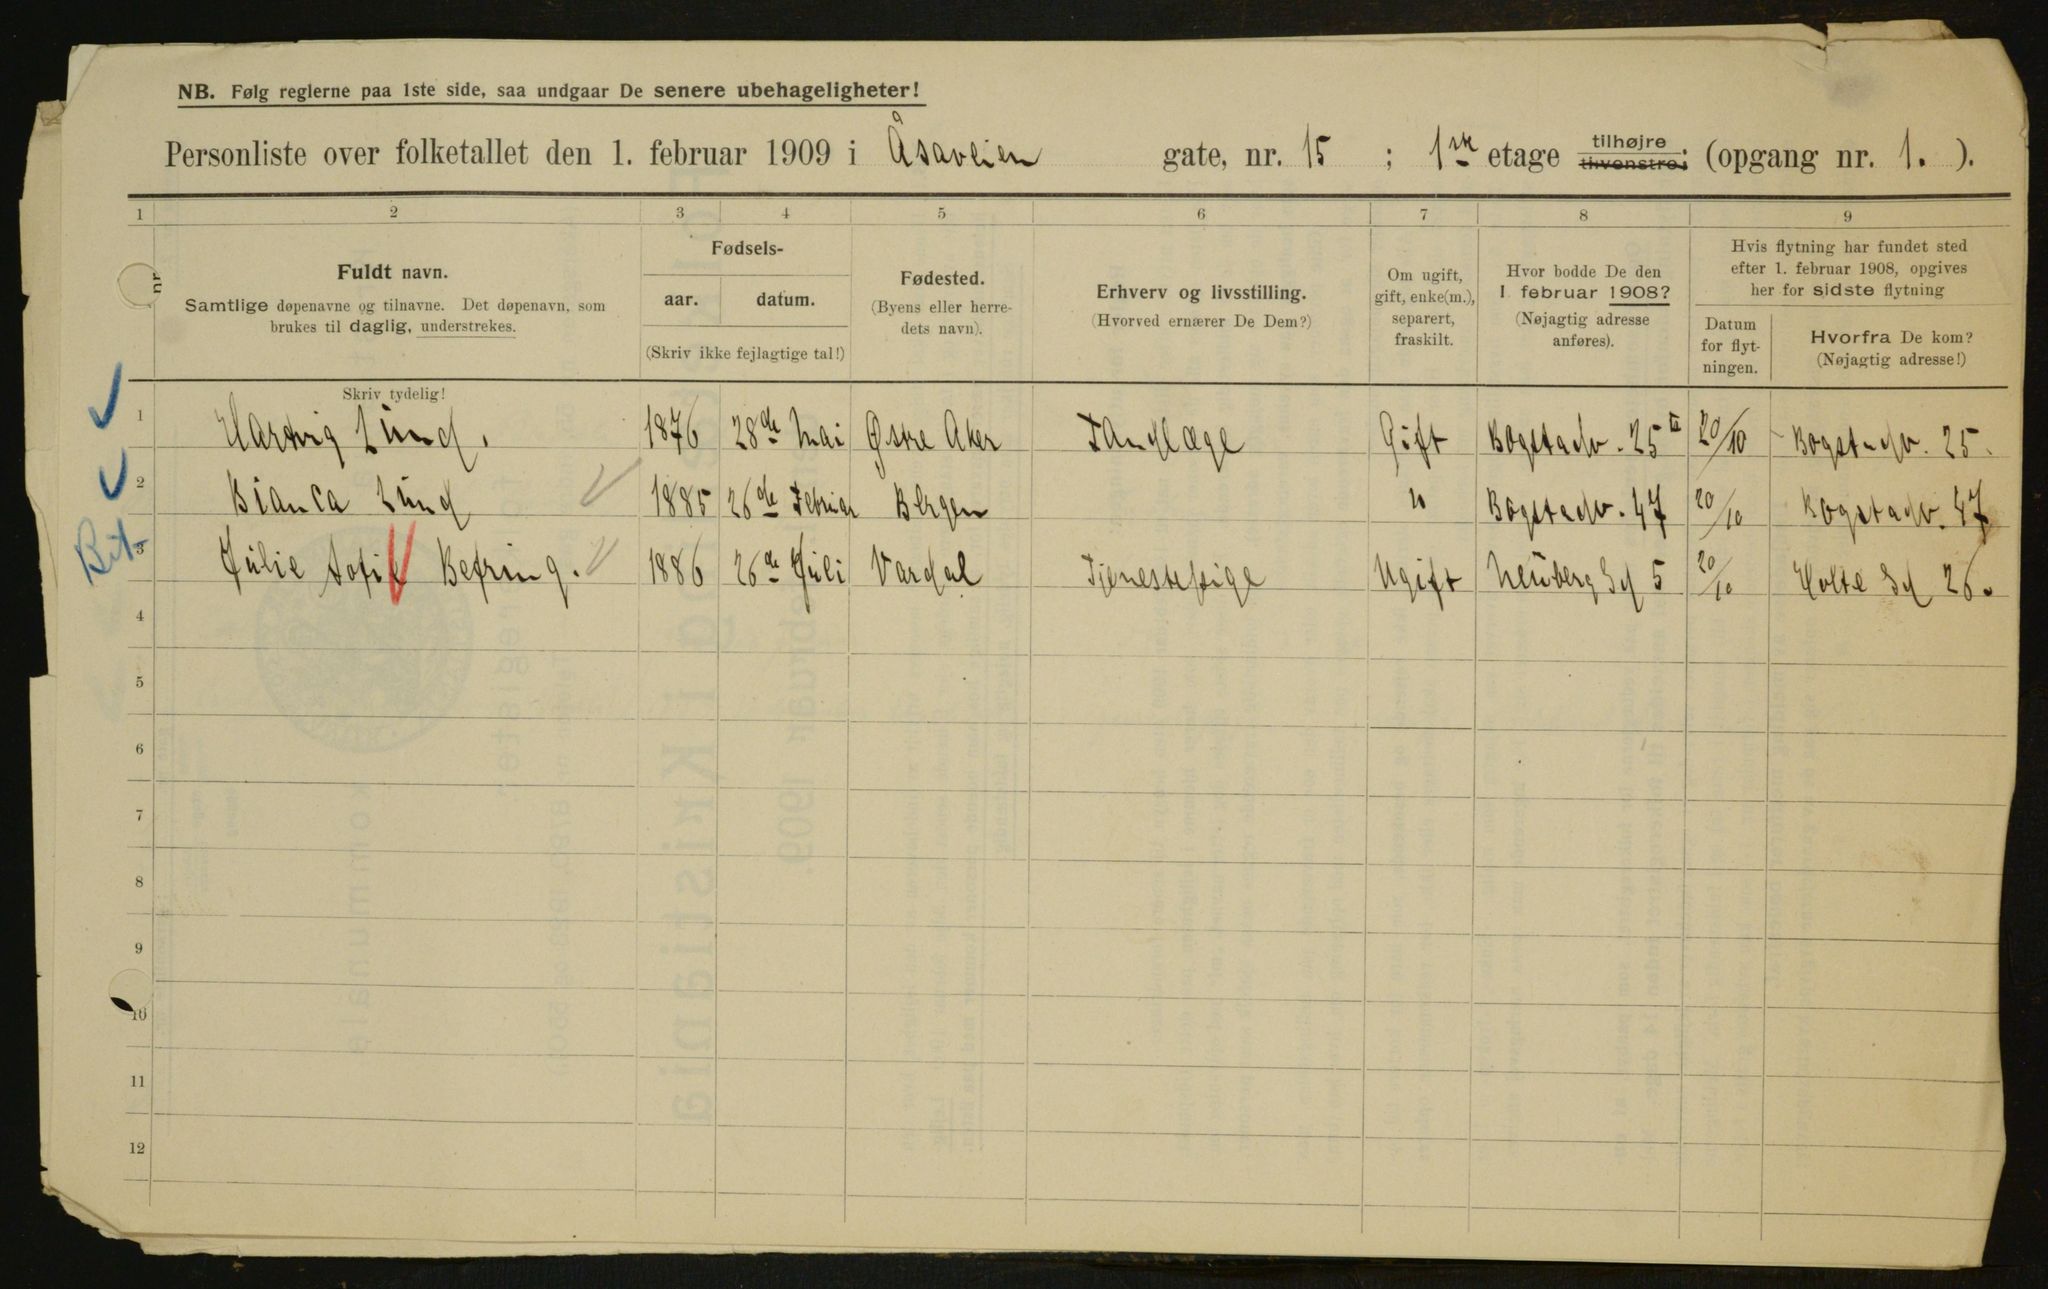 NB. Følg reglerne paa 1ste side, saa undgaar De senere ubehageligheter!
Personliste over folketallet den 1. februar 1909 i Åsaveien gate, nr. 15 ; 1ste etage tilhøjre tilvenstre; (opgang nr. 1. ).
1 2 3 4 5 6 7 8 9
nr
Fuldt navn.
Samtlige døpenavne og tilnavne. Det døpenavn, som
brukes til daglig, understrekes.
Skriv tydelig!
Fødsels-
aar. datum.
(Skriv ikke fejlagtige tal!)
Fødested.
(Byens eller herre-
dets navn).
Erhverv og livsstilling.
(Hvorved ernærer De Dem?)
Om ugift,
gift, enke(m.),
separert,
fraskilt.
Hvor bodde De den
1. februar 1908?
(Nøjagtig adresse
anføres).
Hvis flytning har fundet sted
efter 1. februar 1908, opgives
her for sidste flytning
Datum
for flyt-
ningen.
Hvorfra De kom?
(Nøjagtig adresse!)
1 Hartvig Lund. 1876 28de Mai Østre Aker Tandlæge Gift Bogstadv. 25 II 20/10 Bogstadv. 25.
2 Bianca Lund 1885 26de Februar Bergen " Bogstadv. 47 20/10 Bogstadv. 47
3 Julie Sofie Befring. 1886 26de Juli Vardal Tjenestepige Ugift Neuberg Gd 5 20/10 Holte Gd 26.
4
5
6
7
8
9
10
11
12